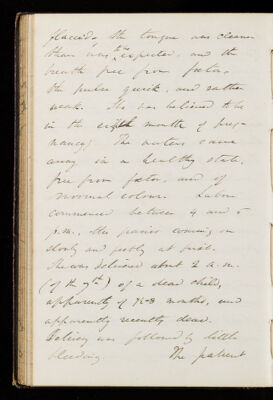 placed, the tongue was cleaner
than was to be expected, and the
breath free from foetor,
the pulse quick, and rather
weak. She was believed to be
in the eighth month of preg-
nancy. The waters came
away in a healthy state,
free from foetor, and of
normal colour. Labour
commenced between 4 and 5
p.m., the pains coming on
slowly and gently at first.
She was delivered about 2 a.m.
(of the 9th) of a dead child,
apparently of 7½-8 months, and
apparently recently dead.
Delivery was followed by little
bleeding. The patient